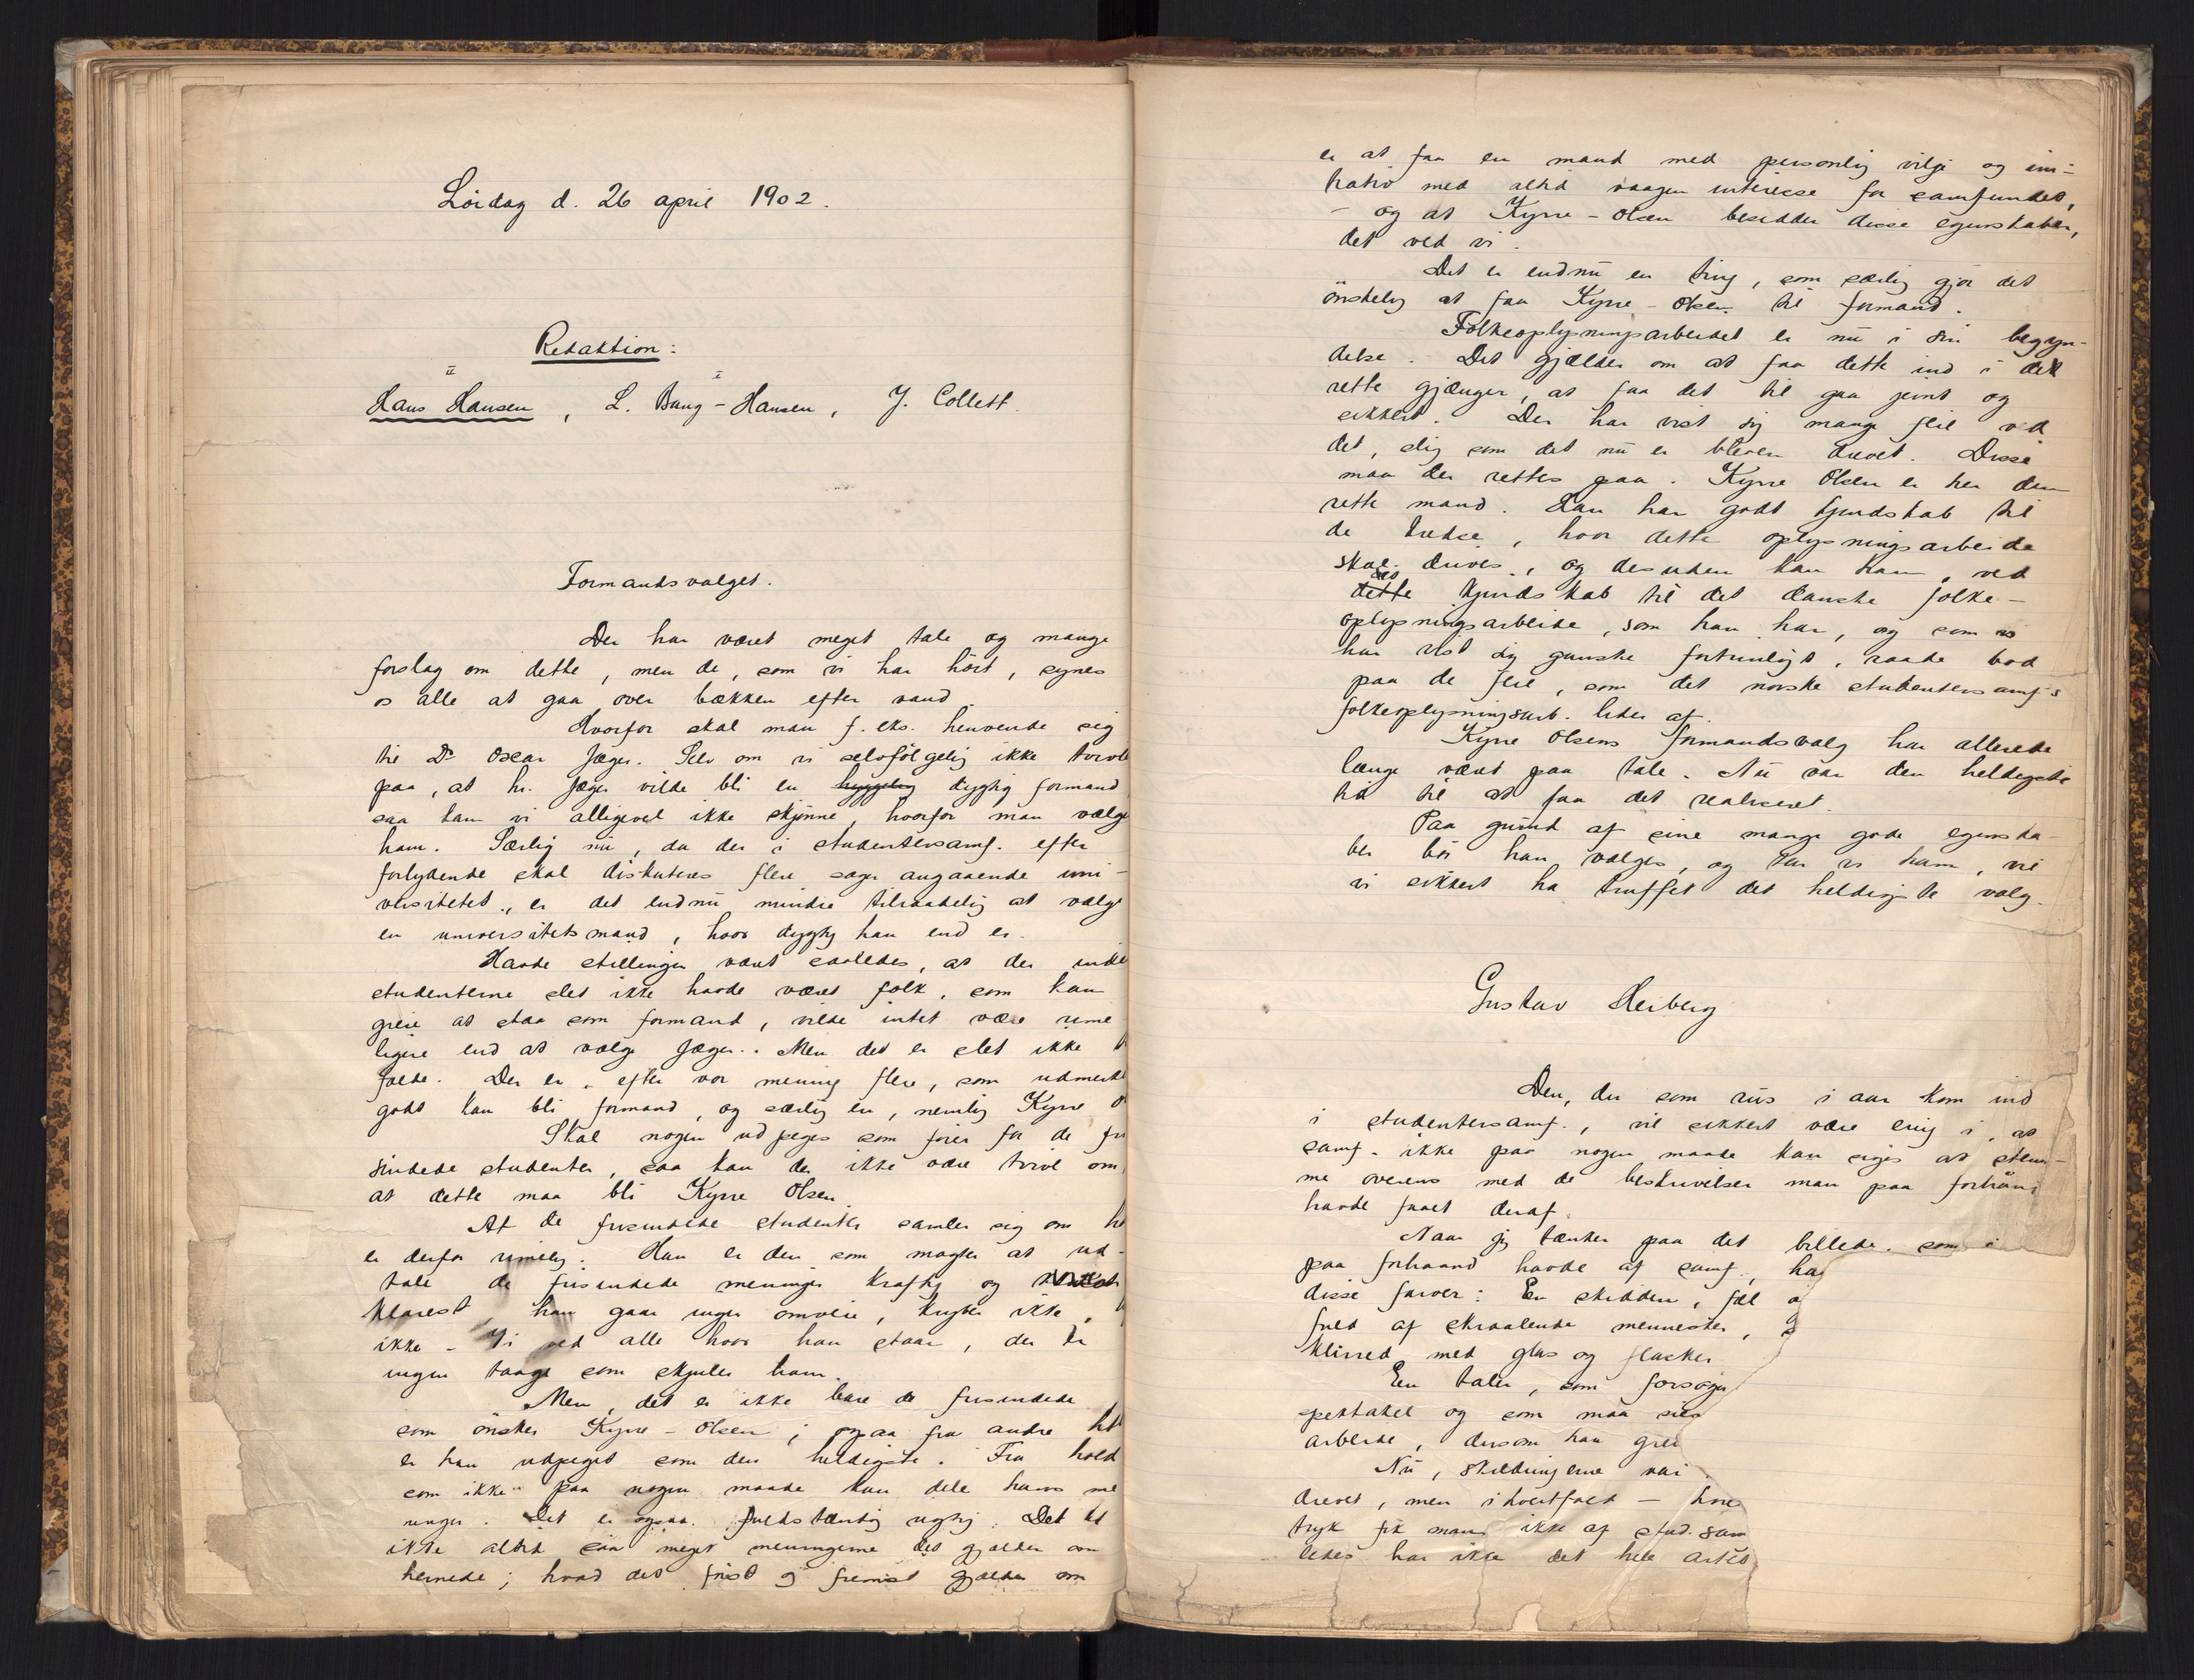 Lördag d. 26 april 1902.
Redaktion:
II I
Hans Hansen, L. Bang-Hansen, J. Collett.
Formandsvalget.
Der har været meget tale og mange
forslag om dette, men de, som vi har hört, synes
os alle at gaa over bækken efter vand.
Hvorfor skal man f. eks. henvende sig
til Dr Oscar Jæger. Selv om vi selvfölgelig ikke tvivle
paa, at hr. Jæger vilde bli en hyggelig dygtig formand
saa kan vi alligevel ikke skjönne, hvorfor man vælge
ham. Særlig nu, da der i studentersamf. efter
forlydende skal diskuteres flere sager angaaende uni-
versitetet, er det endnu mindre tilraadelig at vælge
en universitetsmand, hvor dygtig han end er.
Havde stillingen været saaledes, at der inde
studenterne slet ikke havde været folk, som kan
greie at staa som formand, vilde intet være rime
ligere end at vælge Jæger. Men det er slet ikke
fælde. Der er, efter vor mening flere, som udmerke
godt kan bli formand, og særlig en, nemlig Kyrre O
Skal nogen udpeges som förer for de fri
sindede studenter, saa kan der ikke være tvivl om
at dette maa bli Kyrre Olsen.
At de frisindede studenter samler sig om h
er derfor rimelig. Han er den som magter at ud-
tale de frisindede meninger kraftig og
klarest, han gaar ingen omveie, kryber ikke,
ikke - Vi ved alle hvor han staar, der er
ingen taage som skjuler ham.
Men, det er ikke bare de frisindede
som önsker Kyrre-Olsen; ogsaa fra andre h
er han udpeget som den heldigste. Fra hold
som ikke paa nogen maade kan dele hans me
ninger. Det er ogsaa fuldstændig rigtig. Det er
ikke altid saa meget meningerne det gjælder om
hernede; hvad det först og fremst gjælder om
er at faa en mand med personlig vilje og ini-
tiativ med altid vaagen interesse for samfundet,
- og at Kyrre-Olsen besidder disse egenskaber,
det ved vi.
Det er endnu en ting, som særlig gjör det
önskelig at faa Kyrre-Olsen til formand.
Folkeoplysningsarbeidet er nu i sin begyn-
delse. Det gjælder om at faa dette ind i det
rette gjænger, at faa det til gaa jevnt og
sikkert. Der har vist sig mange feil ved
det, slig som det nu er bleven drevet. Disse
maa der rettes paa. Kyrre Olsen er her den
rette mand. Han har godt kjendskab til
de kredse, hvor dette oplysningsarbeide
skal drives, og desuden kan han, ved
det
dette kjendskab til det danske folke-
oplysningsarbeide, som han har, og som
har vist sig ganske fortrinligt, raade bod
paa de feil, som det norske studentersamf's
folkeoplysningsarb. lider af.
Kyrre Olsens formandsvalg har allerede
længe været paa tale. Nu var den heldigste
tid til at faa det realiseret.
Paa grund af sine mange gode egenska-
ber bör han vælges, og tar vi ham, vil
vi sikkert ha truffet det heldigste valg.
Gustav Heiberg
Den, der som rus i aar kom ind
i studentersamf., vil sikkert være enig i, at
samf. ikke paa nogen maade kan siges at stem-
me overens med de beskrivelser man paa forhaand
havde faaet deraf.
Naar jeg tænker paa det billede, som
paa forhaand havde af samf., ha
disse farver: En skidden, fæl
fuld af skraalende mennesker,
klirred med glas og flasker.
En taler, som forsöger
spektakel og som maa
arbeide, dersom han grei
Nu, skildringerne var
drevet, men ihvertfald -
tryk fik man ikke af stud. sam
ledes har ikke det hele artet